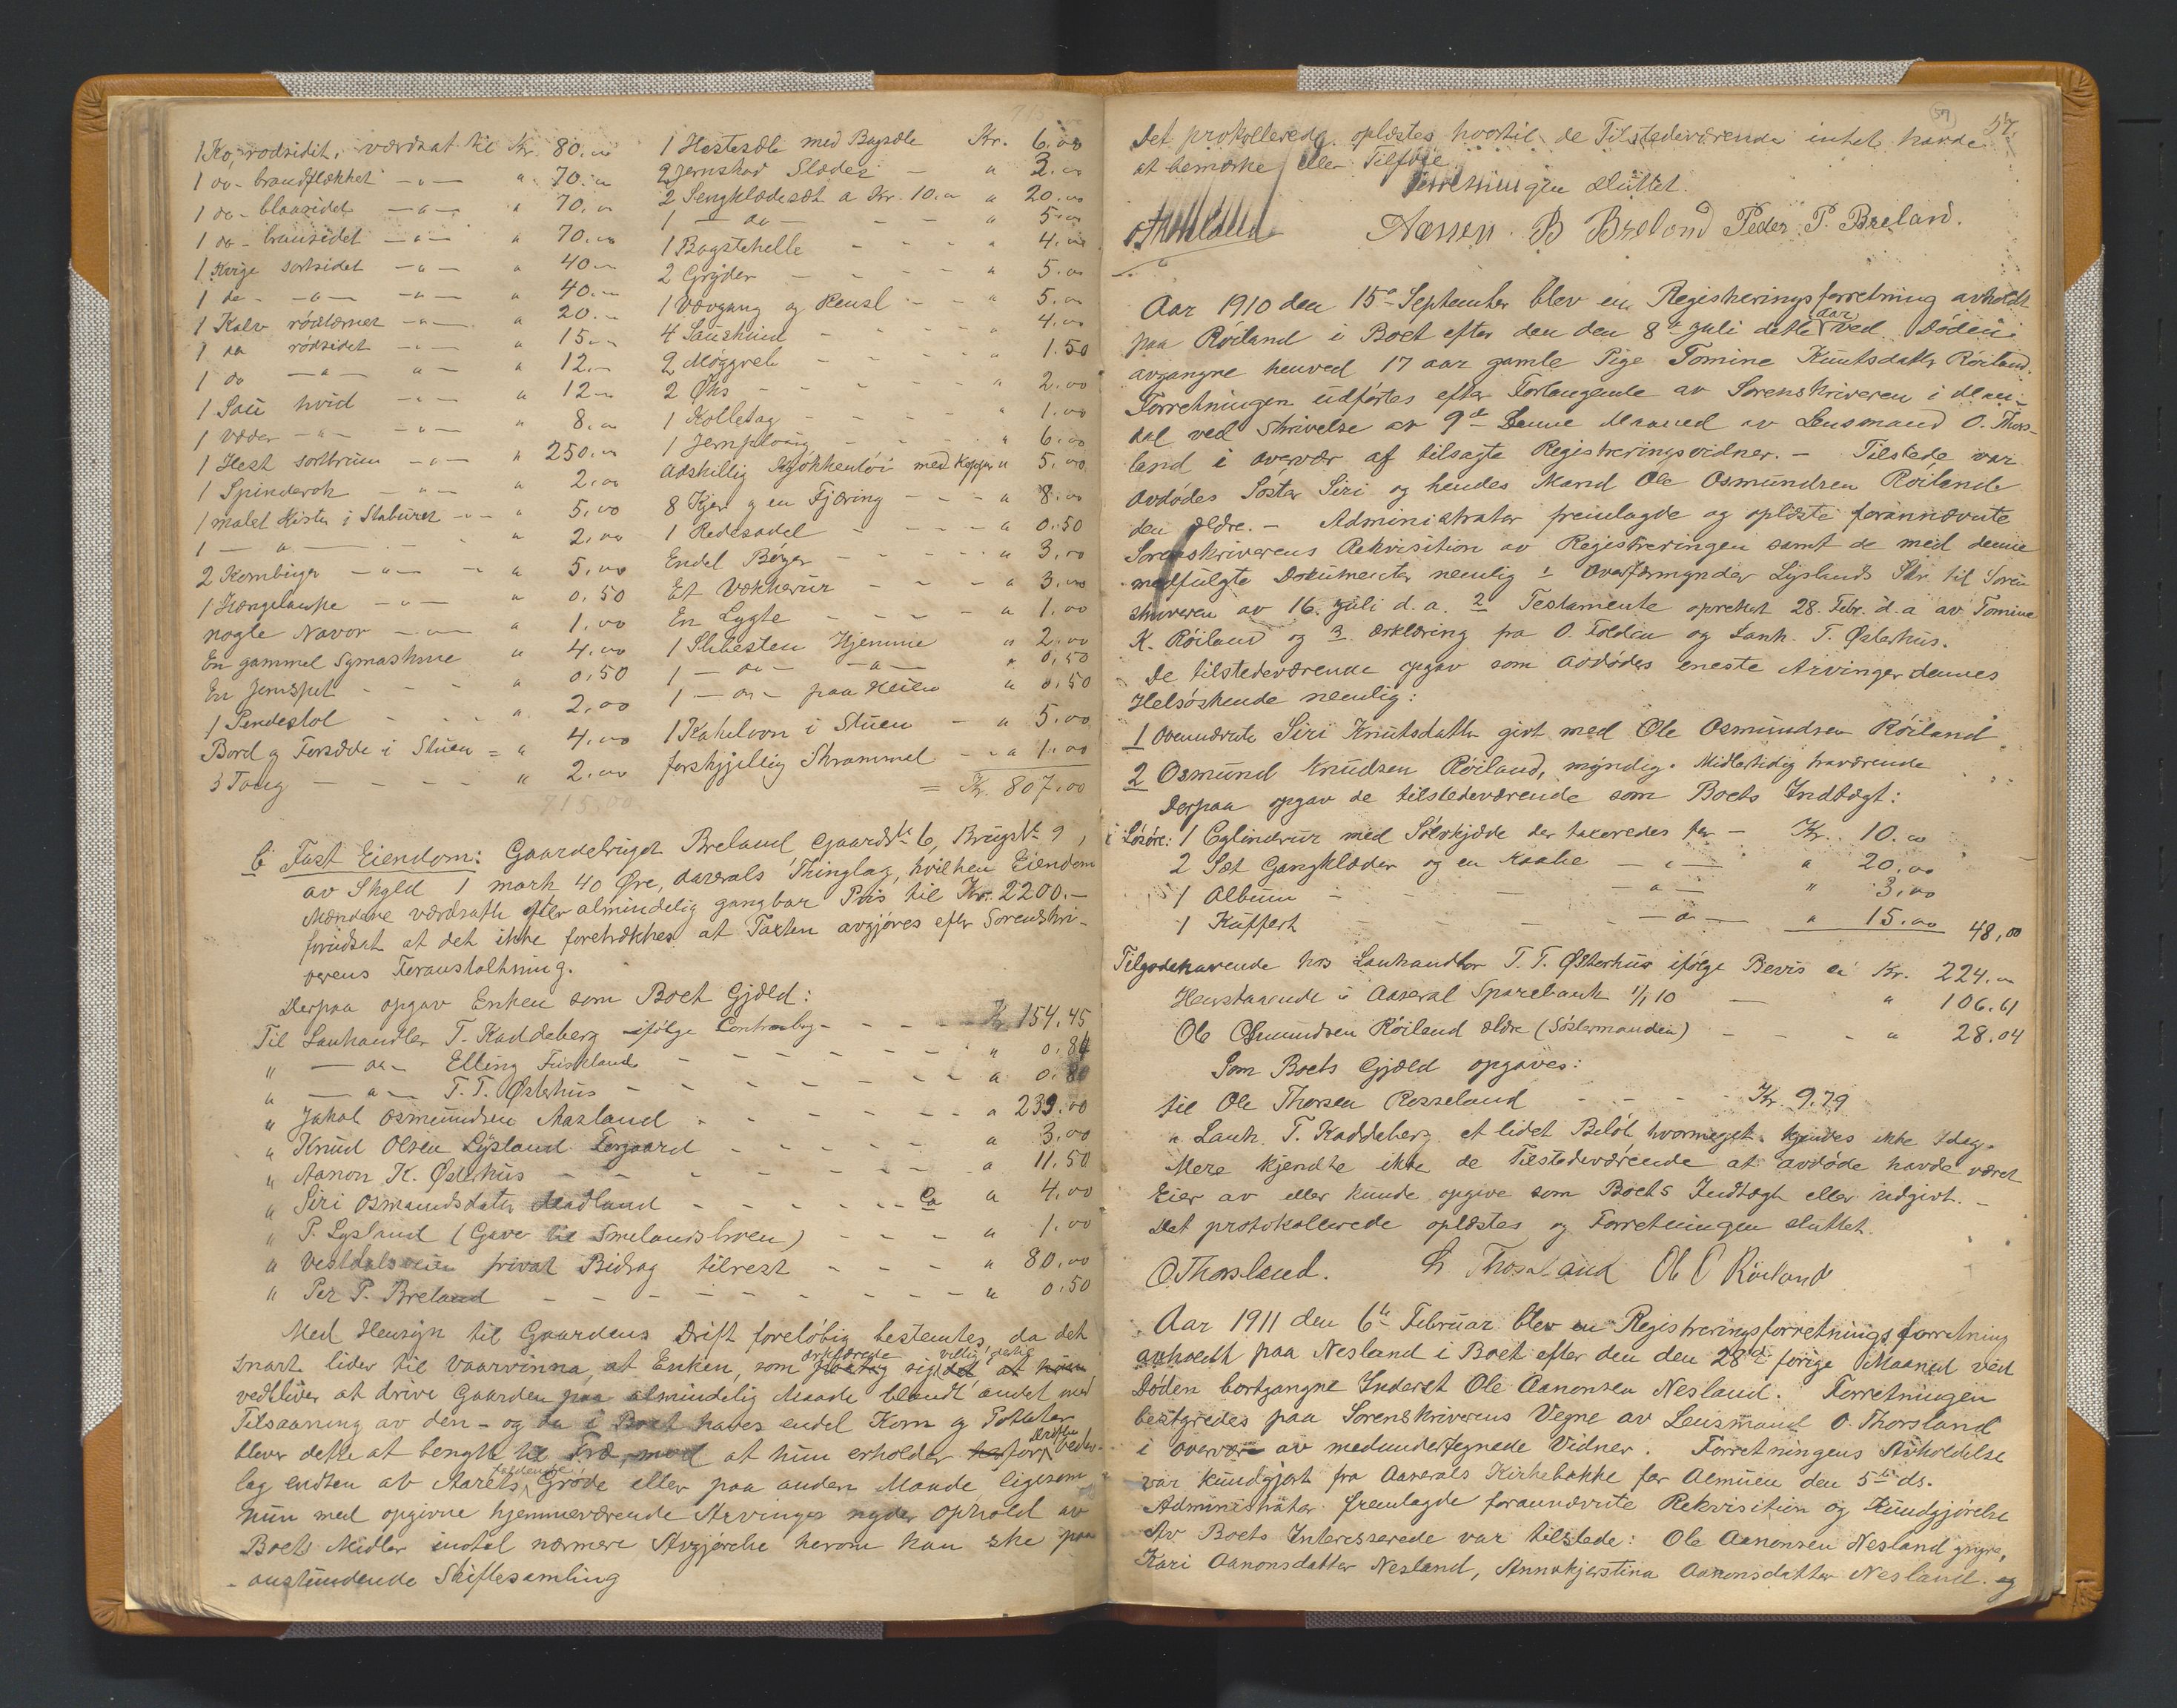 1 Ko, rødsidet, værdsat til Kr. 80.00
1 do - brandflekket — " — " 70.00
1 do - blaasidet — " — " 70.00
1 do - brunsidet — " — " 70.00
1 Kvige sortsidet — " — " 40.00
1 do - — " — — " — " 40.00
1 Kalv — " — " 20.00
1 do rødsidet — " — " 15.00
1 do — " — " — " 12.00
1 Sau hvid — " — " 12.00
1 Væder — " — — " — " 8.00
1 Hest sortbrun — " — " 250.00
1 Spinderok — " — " 2.00
1 malet Kiste i Staburet — " — " 5.00
1 — " — " 2.00
2 Kornbinger — " — " 5.00
1 Hængelampe — " — " 0.50
nogle Navor — " — " 1.00
En gammel Symaskine " 4.00
En Jernspet - - - " 0.50
1 Pendestol - - - " 2.00
Bord og Forsæde i Stuen = " 4.00
3 Tong — - - - " 2.00
715.00
1 Hestesæle med Bagsæle Kr. 6.00
2 Jernskod Slæder — " 3.00
2 Sengklædesæt a Kr. 10.00 " 20.00
1 — do — - - " 5.00
1 Bagstehelle - - - " 4.00
2 Gryder - - - - " 5.00
1 Vævgang og Rensl - - " 5.00
4 Saueskind - - - - 4.00
2 Møggreb - - - - " 1.50
2 Øks - - - - - " 2.00
1 Kolletag - - - - " 1.00
1 Jernploug - - - - " 6.00
Adskillig Kjøkkentøi med Kopper " 5.00
8 Kjer og en Fjæring - - - " 8.00
1 Redesadel - - - - " 0.50
Endel Bøger - - - - - " 3.00
Et Vækkerur - - - - " 3.00
En Lygte - - - - " 1.00
1 Slibesten Hjemme " 2.00
1 — do — — " — " 0.50
1 — do — paa Heien " 0.50
1 Kakelovn i Stuen - " 5.00
forskjellig Skrammel - - " 1.00
= Kr. 807.00
C Fast Eiendom: Gaardsbruget Breland Gaards No 6, Brugs No 9,
av Skyld 1 mark 40 Øre, Aaserals Thinglag, hvilken Eiendom
Mændene værdsatte efter almindelig gangbar Pris til Kr. 2200.—
forudsat at det ikke foretrækkes at Taxten avgjøres efter Sorenskri-
verens Foranstaltning.
Derpaa opgav Enken som Boets Gjæld:
Til Lanhandler T. Kaddeberg ifølge Contrabog - - - - Kr. 154.45
" — do — Elling - - - - - - - " 0.84
" — " — T. T. Østerhus - - - - - - - " 0.80
" Jakob Osmundsen Aasland - - - - - - " 239.00
" Knud Olsen Lysland - - - - - " 3.00
" Aanon K. Østerhus - - - - - - - " 11.50
" Siri Osmundsdatter Aadland - - - - - - Ca " 4.00
" P. Lysland (Gave til Smelandsbroen) - - - " 1.00
" Vestdalsveien privat Bidrag tilrest - - - " 80.00
" Per P. Breland - - - - - - - - " 0.50
Med Hensyn til Gaardens Drift foreløbig bestemtes, da det
snart lider til Vaarvinna, at Enken, som erklærede sig villig dertil
vedbliver at drive Gaarden paa almindelig Maade blandt andet med
Tilsaaning av den - og da i Boet haves endel Korn og Poteter
blever dette at benytte til Frø, mod at hun erholder for Driften veder-
lag endten av Aarets faldende Grøde eller paa anden Maade, ligesom
hun med opgivne hjemmeværende Arvinger nyder ophold av
Boets Midler indtil nærmere Avgjørelse herom kan ske paa
anstundende Skiftesamling
57.
Det protokollerede oplæstes, hvortil de Tilstedeværende intet havde
at bemærke eller Tilføie.
Forretningen sluttet.
B Breland Peder P. Breland.
Aar 1910 den 15de September blev en Registreringsforretning avholdt
paa Røiland i Boet efter den den 8de Juli dette aar ved Døden
avgangne henved 17 aar gamle Pige Tomine Knutsdatter Røiland.
Forretningen udførtes efter Forlangende av Sorenskriveren i Man-
dal ved Skrivelse av 9de denne Maaned av Lensmand O. Thors-
land i overvær af tilsagte Registreringsvidner. — Tilstede var
Avdødes Søster Siri og hendes Mand Ole Osmundsen Røiland
den ældre. — Administrator fremlagde og oplæste forannævnte
Sorenskriverens Rekvisition av Registreringen samt de med denne
medfulgte Dokumenter nemlig 1 Overformynder Lyslands Skr. til Soren-
skriveren av 16. Juli d.a. 2 Testamente oprettet 28. Febr. d.a av Tomine
K. Røiland og 3. Erklæring fra O. Foldøen og Lanh. T. Østerhus.
De tilstedeværende opgav som avdødes eneste Arvinger dennes
Helsøskende nemlig:
1 Ovennævnte Siri Knutsdatter givt med Ole Osmundsen Røiland
2 Osmund Knudsen Røiland, myndig. Midlertidig fraværende
Derpaa opgav de tilstedeværende som Boets Indtægt:
i Løsøre: 1 Cylinderur med Sølvkjæde der taxeredes for — Kr. 10.00
2 Sæt Gangklæder og en Kaabe — " — " 20.00
1 Album - - - — " — " 3.00
1 Kuffert - - - — " — " 15.00 48,00
Tilgodehavende hos Lanhandler T. T. Østerhus ifølge Bevis Kr. 224.00
Henstaaende i Aaseral Sparebank 1/1 10 — " 106.61
Ole Osmundsen Røiland ældre (Søstermanden) — - - " 28.04
Som Boets Gjæld opgaves:
til Ole Thorsen Rosseland - - - - Kr. 9.79
" Lanh. T. Kaddeberg et lidet Beløb, hvormeget kjendes ikke Idag.
Mere kjendte ikke de Tilstedeværende at avdøde havde været
Eier av eller kunde opgive som Boets Indtægt eller udgivt. —
Det protokollerede oplæstes og Forretningen sluttet.
O Thorsland. Thorsland Ole O Röiland
Aar 1911 den 6te Februar blev en Registreringsforretnings forretning
avholdt paa Nesland i Boet efter den den 28de forrige Maaned ved
Døden bortgangne Inderst Ole Aanonsen Nesland. Forretningen
bestyredes paa Sorenskriverens Vegne av Lensmand O. Thorsland
i overvær av medundertegnede Vidner. Forretningens Avholdelse
var kundgjort fra Aaserals Kirkebakke for Almuen den 5te ds.
Administrator fremlagde forannævnte Rekvisition og Kundgjørelse
Av Boets Interesserede var tilstede: Ole Aanonsen Nesland yngre,
Kari Aanonsdatter Nesland, Annakjerstina Aanonsdatter Nesland og